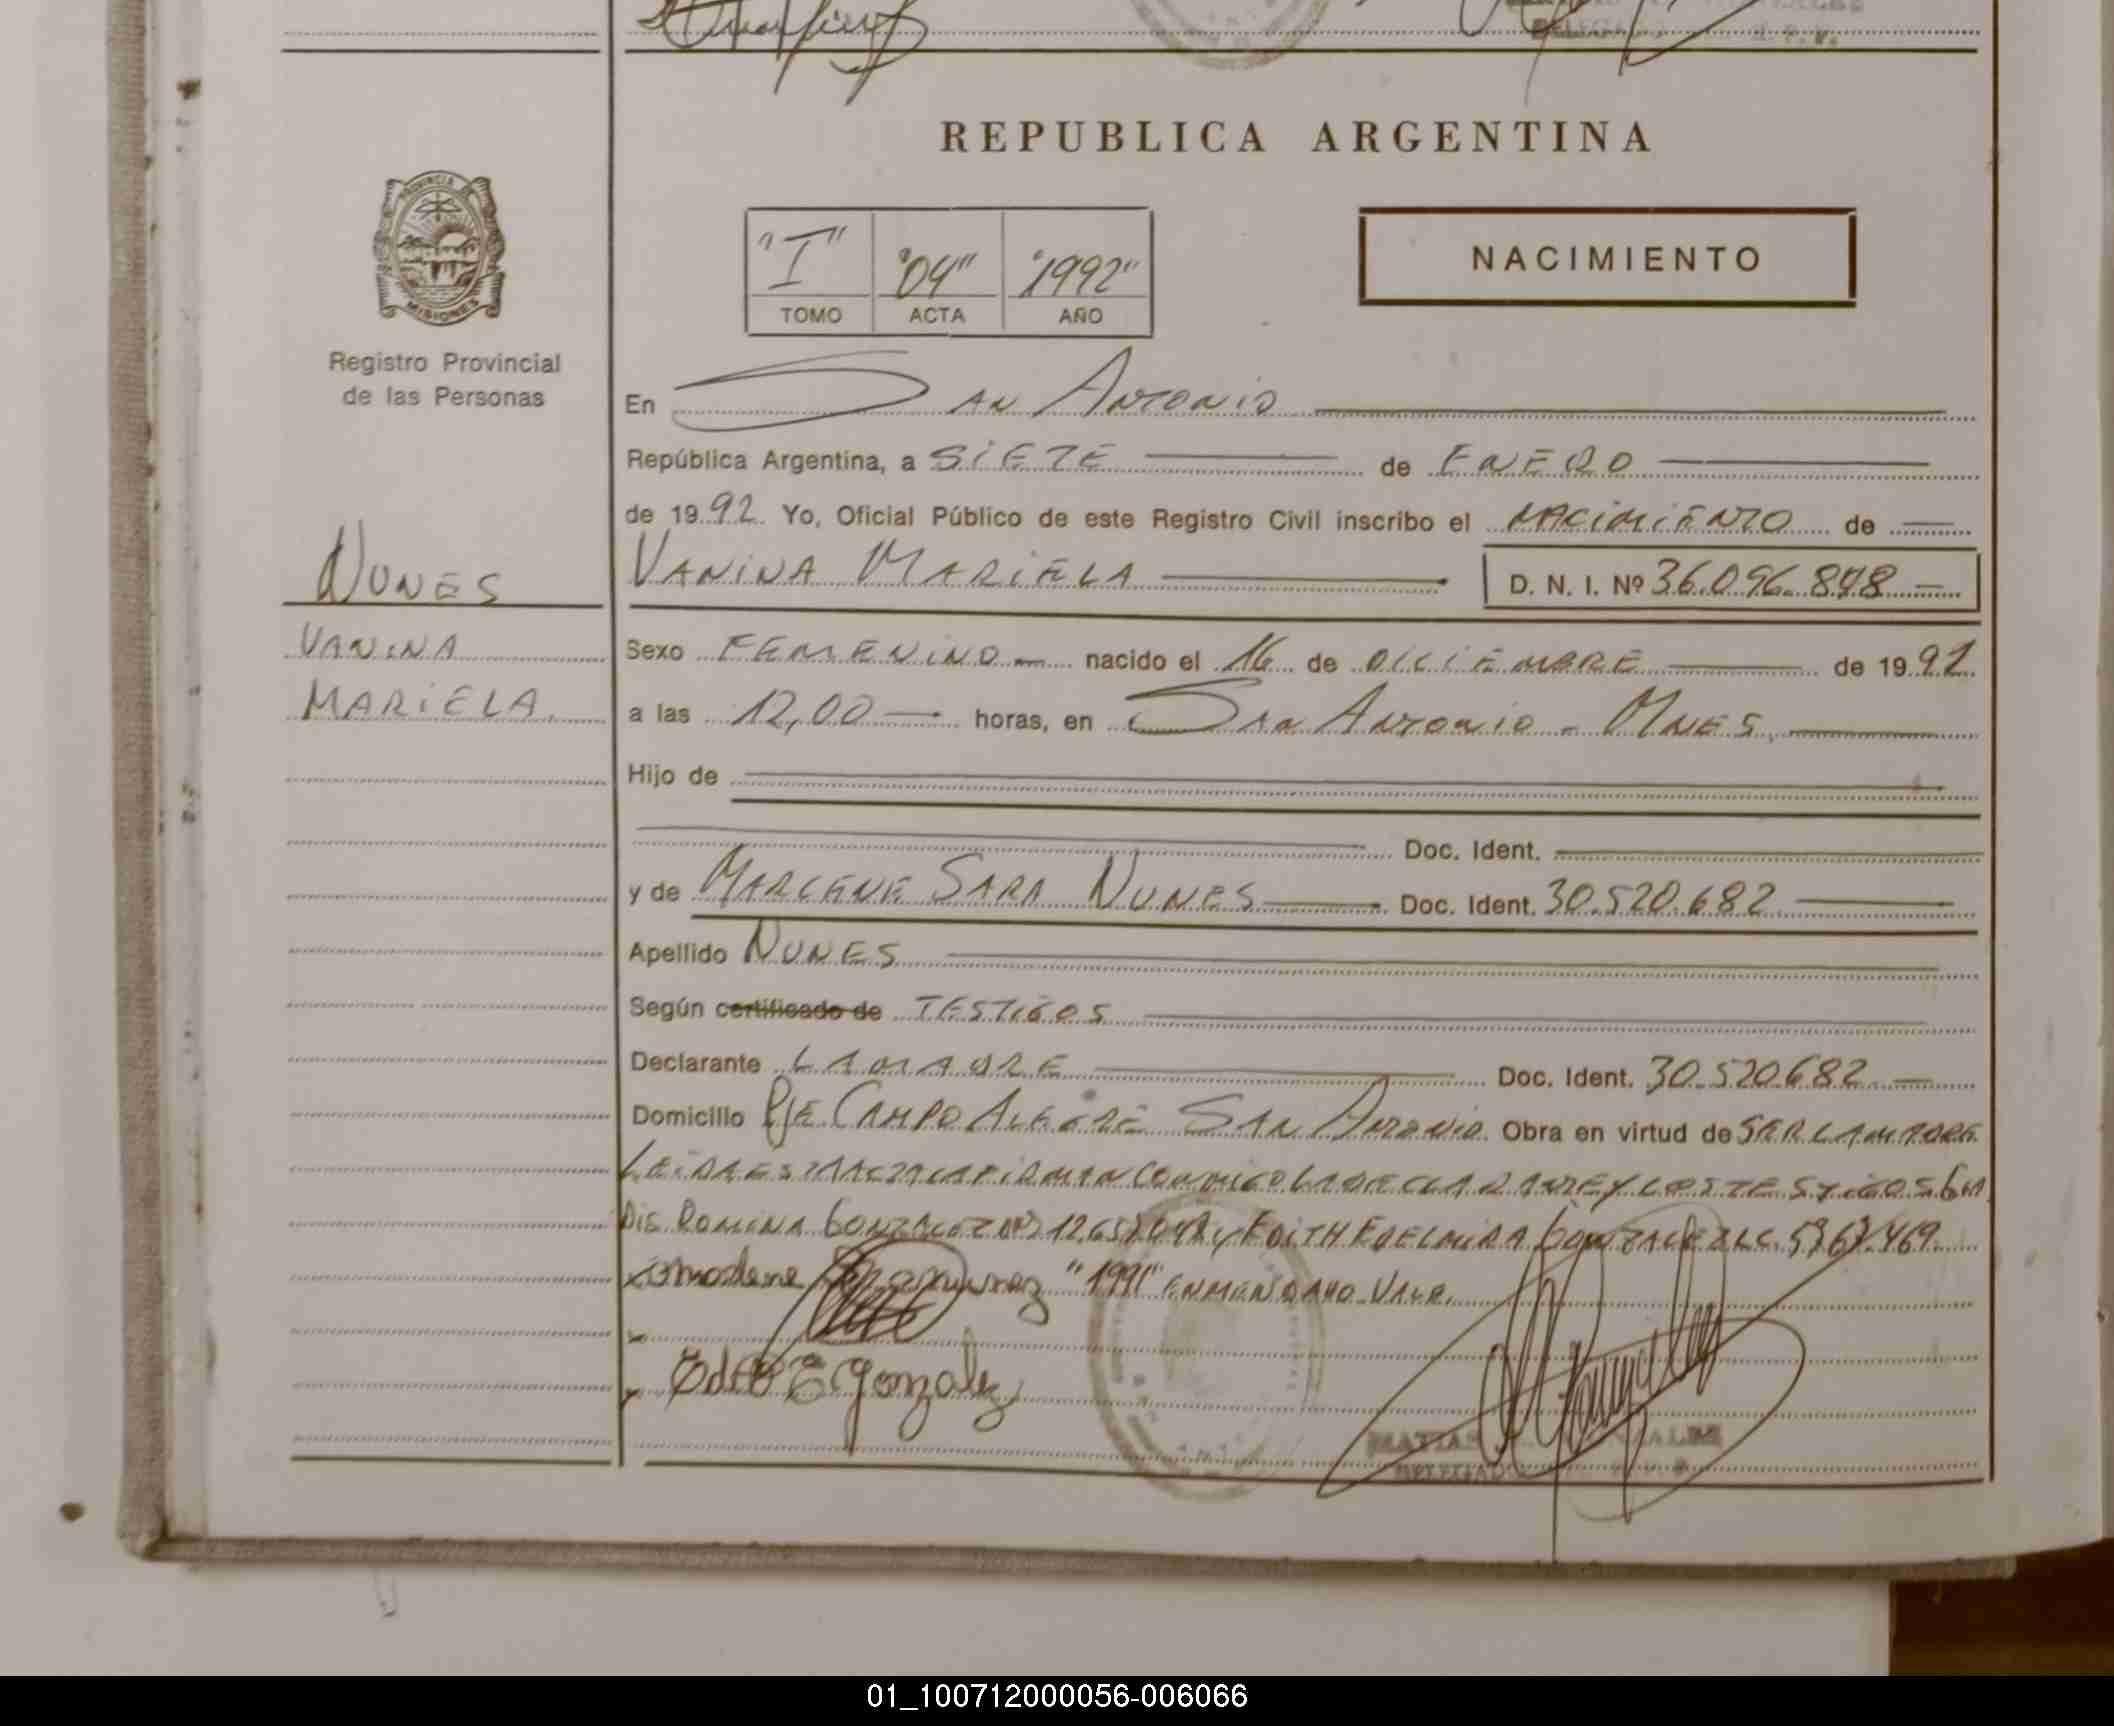 REPUBLICA ARGENTINA
PROVINCIA DE
MISIONES
Registro Provincial
de las Personas
"I" "04" "1992"
TOMO ACTA AÑO
NACIMIENTO
En SAN ANTONIO
República Argentina, a SIETE de ENERO
de 1992. Yo, Oficial Público de este Registro Civil inscribo el NACIMIENTO de
NUNES
VANINA MARIELA
D. N. I. Nº 36.096.848
VANINA
MARIELA.
Sexo FEMENINO nacido el 16 de DICIEMBRE de 1991
a las 12,00 horas, en SAN ANTONIO - MNES.
Hijo de
Doc. Ident.
y de MARLENE SARA NUNES Doc. Ident. 30.520.682
Apellido NUNES
Según certificado de TESTIGOS
Declarante LA MADRE Doc. Ident. 30.520.682
Domicilio PJE. CAMPO ALEGRE SAN ANTONIO. Obra en virtud de SER LA MADRE
LEIDA ESTA ACTA LA FIRMAN CONMIGO LA DECLARANTE Y LOS TESTIGOS
ROMINA GONZALEZ Y EDITH EDELMIRA GONZALEZ L.C.
"1991" ENMENDADO VALE.
Edith E Gonzalez
DELEGADO
01_100712000056-006066